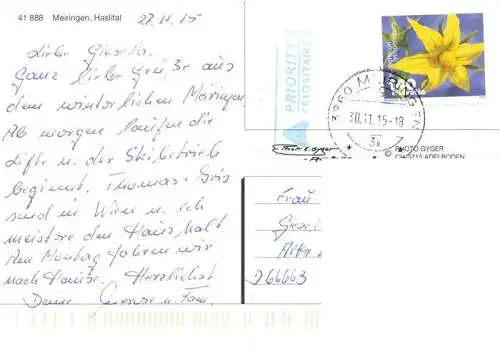 41 888 Meiringen, Haslital
27.11.15
Liebe Gisela.
Ganz liebe Grüße aus
dem winterlichen Meiringen
Ab morgen laufen die
Lifte u. der Skibetrieb
beginnt. Thomas + Gris
sind in Wien u. ich
meistere den Haushalt.
Am Montag fahren wir
nach Hause. Herzlichst
Deine u. Fam.
PRIORITY
PRIORITAIRE
3860 MEIRINGEN
30.11.15-18
© PHOTO GYGER
CH-3715 ADELBODEN
Frau
Gisel
D 66663